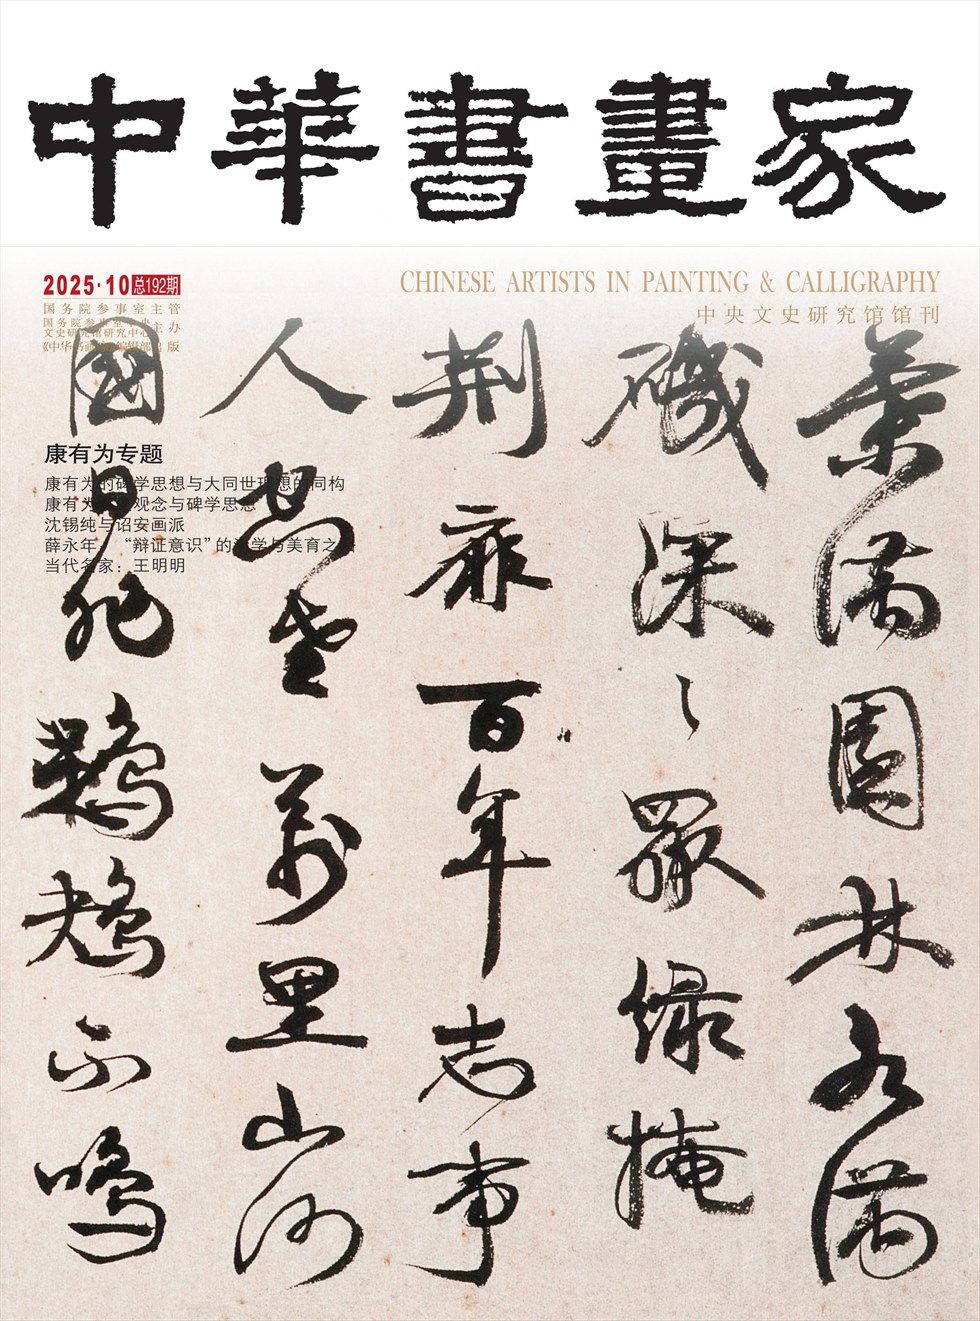 中華書畫家
2025·10 总192期
CHINESE ARTISTS IN PAINTING & CALLIGRAPHY
中央文史研究馆馆刊
国务院参事室主管
国务院参事室 中央文史研究馆研究中心 主办
《中华书画家》编辑部出版
康有为专题
康有为的碑学思想与大同世理想的同构
康有为 观念与碑学思想
沈锡纯与诏安画派
薛永年:“辩证意识”的 学与美育之
当代名家：王明明
葉滿園林水滿
磯深〻罨緑掩
荆扉百年志事
人 老萬里山河
國日非鶗鴂不鳴